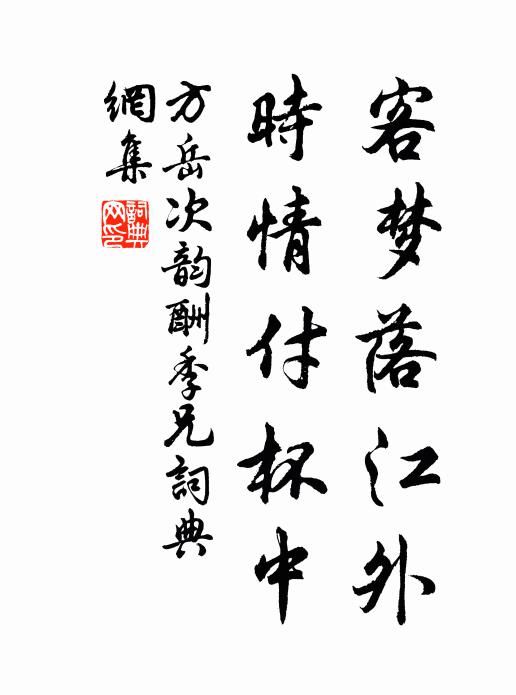 客梦落江外
時情付杯中
方岳次韵酬季兄詞典
網集
詞典
网印